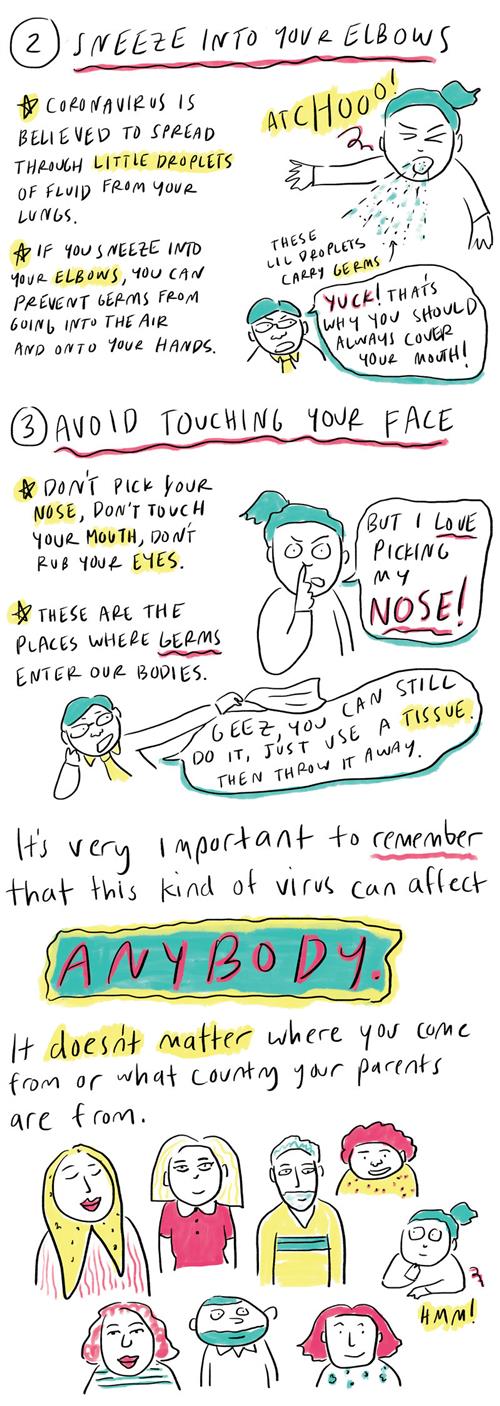 2 SNEEZE INTO YOUR ELBOWS
CORONAVIRUS IS
BELIEVED TO SPREAD
THROUGH LITTLE DROPLETS
OF FLUID FROM YOUR
LUNGS.
IF YOU SNEEZE INTO
YOUR ELBOWS, YOU CAN
PREVENT GERMS FROM
GOING INTO THE AIR
AND ONTO YOUR HANDS.
ATCHOOO!
THESE
LIL DROPLETS
CARRY GERMS
YUCK! THAT'S
WHY YOU SHOULD
ALWAYS COVER
YOUR MOUTH!
3 AVOID TOUCHING YOUR FACE
DON'T PICK YOUR
NOSE, DON'T TOUCH
YOUR MOUTH, DON'T
RUB YOUR EYES.
THESE ARE THE
PLACES WHERE GERMS
ENTER OUR BODIES.
BUT I LOVE
PICKING
MY
NOSE!
GEEZ, YOU CAN STILL
DO IT, JUST USE A TISSUE.
THEN THROW IT AWAY.
It's very important to remember
that this kind of virus can affect
ANYBODY.
It doesn't matter where you come
from or what country your parents
are from.
HMM!